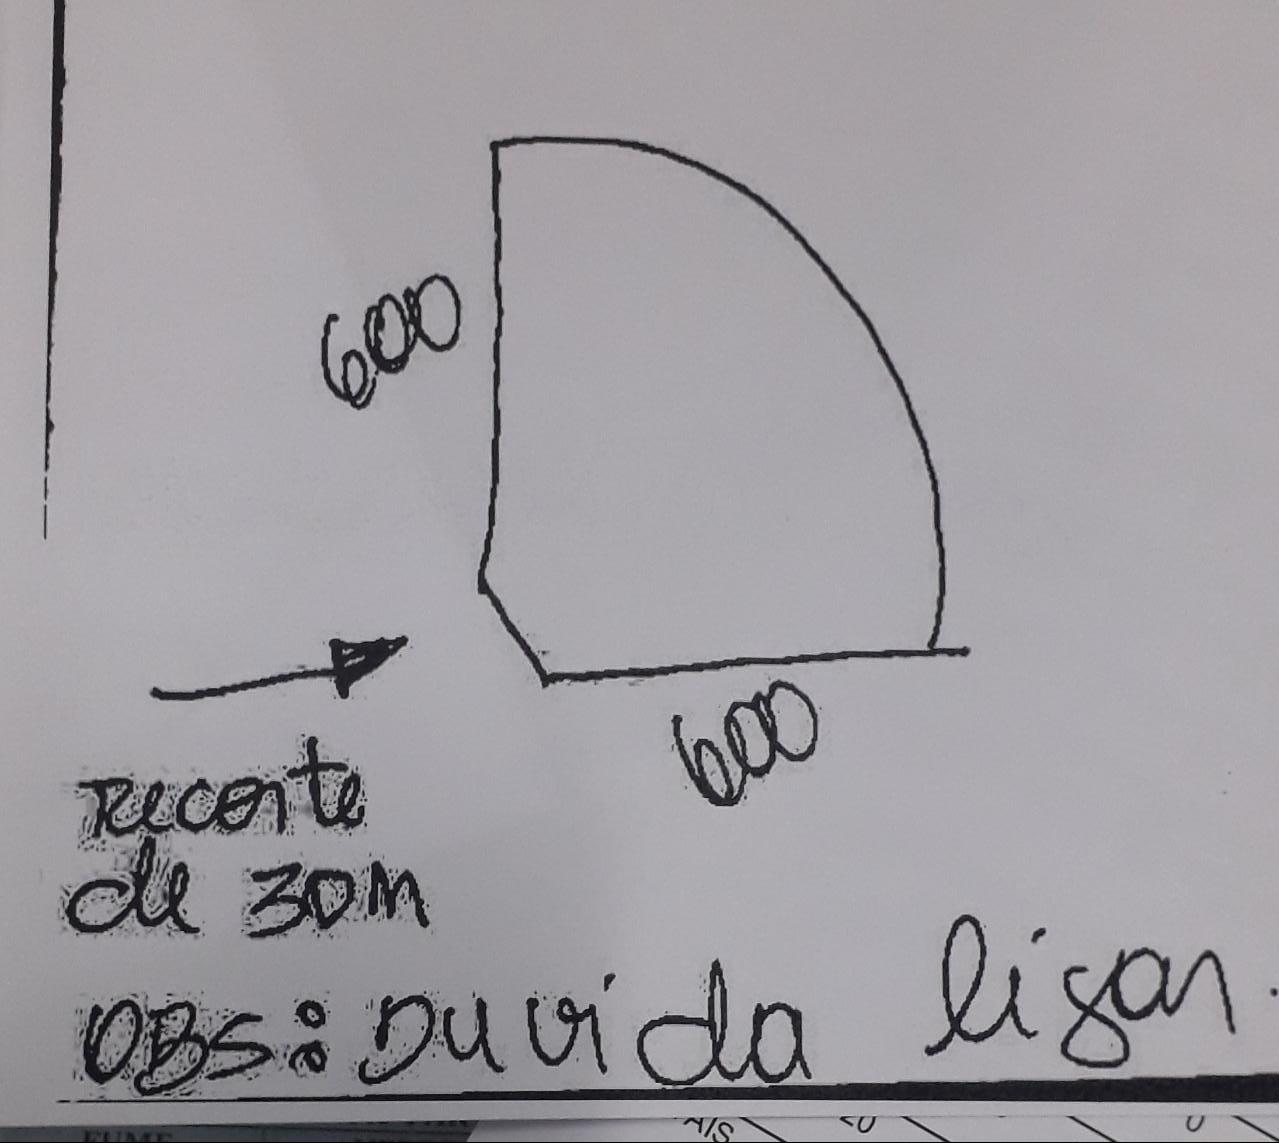 600
600
Recorte
de 30m
OBS: Duvida ligar.
FUME
A/S